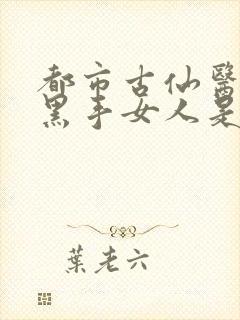 都市古仙醫
黑手女人是
葉老六